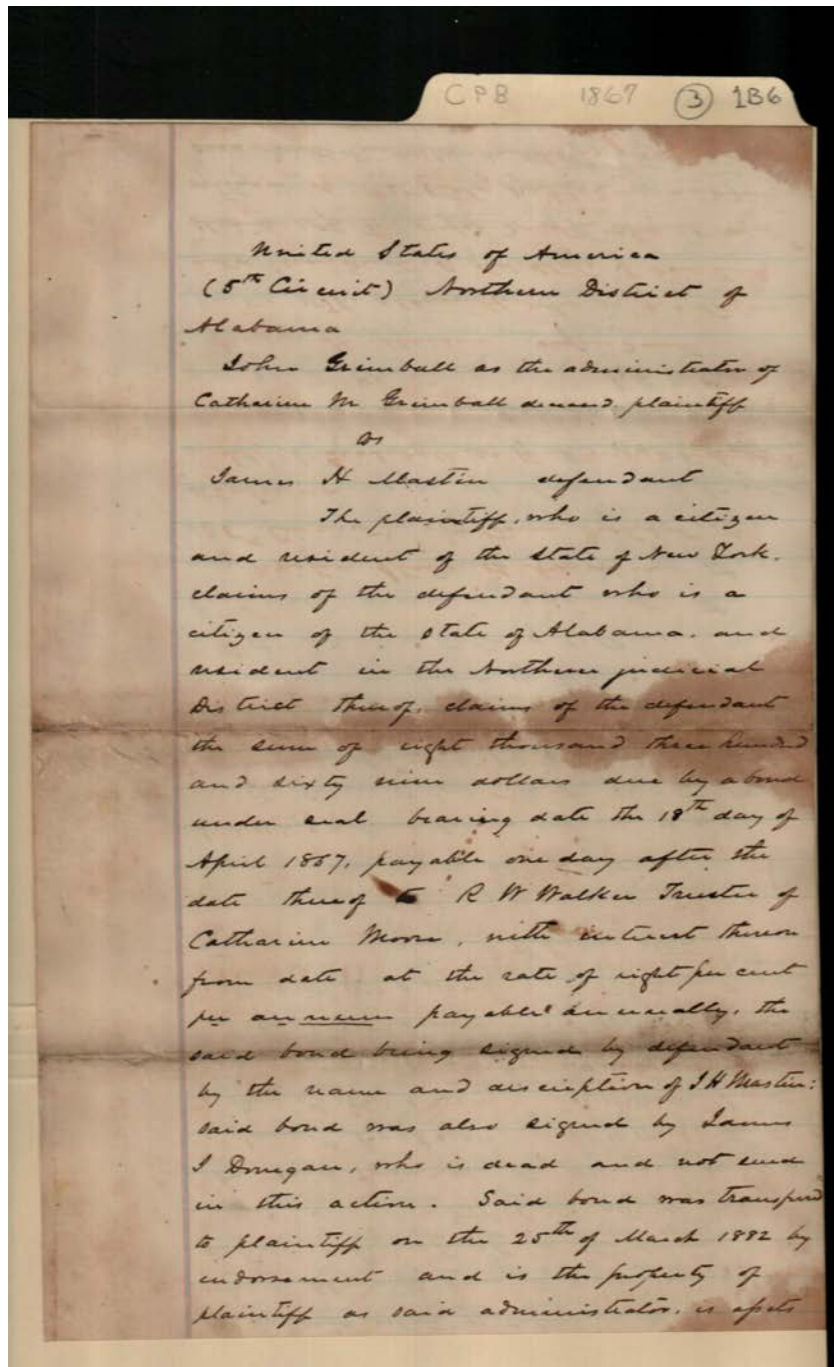 CPB 1867 3 1B6
United States of America
(5th Circuit) Northern District of
Alabama
John Grimball as the administrator of
Catharine M Grimball deceased. plaintiff
vs
James H Mastin defendant
The plaintiff, who is a citizen
and resident of the State of New York.
claims of the defendant who is a
citizen of the State of Alabama. and
resident in the Northern judicial
District thereof, claims of the defendant
the sum of eight thousand three hundred
and sixty nine dollars due by a bond
under seal bearing date the 18th day of
April 1867, payable one day after the
date thereof to R W Walker Trustee of
Catharine Moore, with interest thereon
from date at the rate of eight per cent
per annum payable annually, the
said bond being signed by defendant
by the name and description of J H Mastin:
said bond was also signed by James
J Donegan, who is dead and not sued
in this action. Said bond was transferred
to plaintiff on the 25th of March 1882 by
endorsement and is the property of
plaintiff as said administrator. is assets